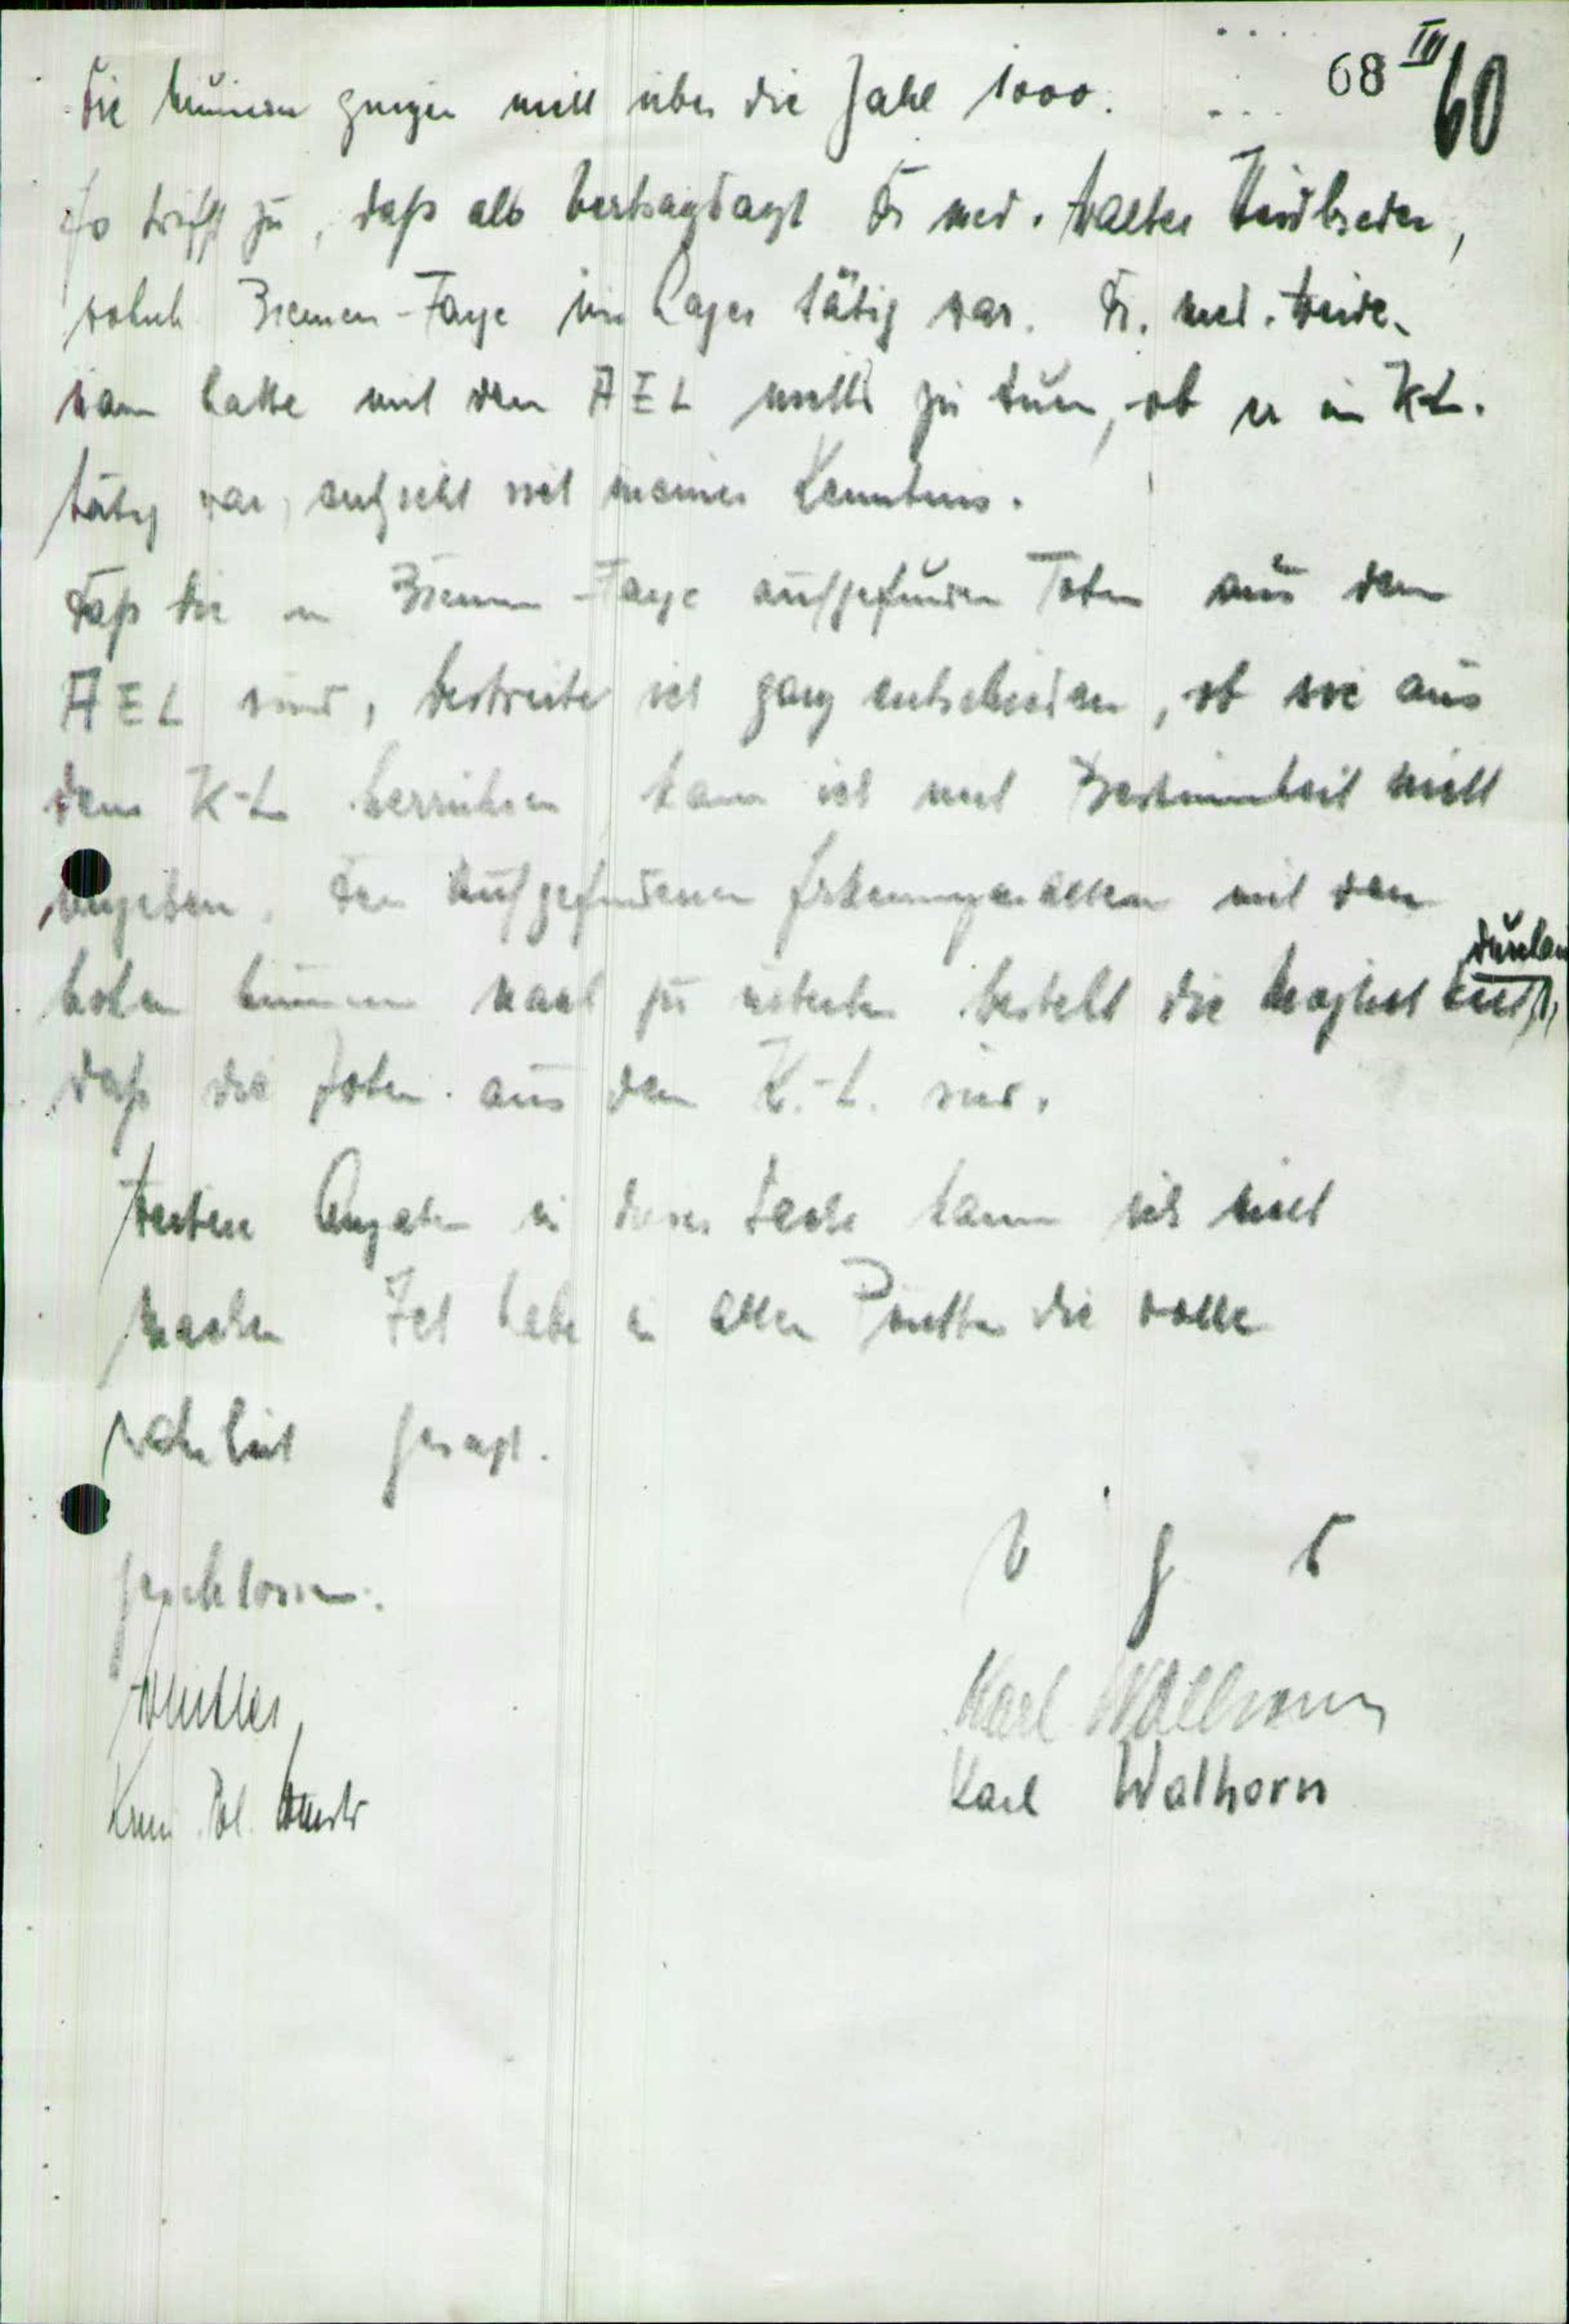 68 III 60
Die Nummern gingen nicht über die Zahl 1000.
Es trifft zu, daß als Vertragsarzt Dr med. Walter Heidbreder,
wohnh Bremen-Farge im Lager tätig war. Dr. med. Weide-
mann hatte mit dem AEL nichts zu tun, ob er im KL.
tätig war, entzieht sich meiner Kenntnis.
Daß die in Bremen-Farge aufgefunden Toten aus dem
AEL sind, bestreite ich ganz entschieden, ob sie aus
dem K-L herrühren kann ich mit Bestimmtheit nicht
angeben. Den aufgefundenen Erkennungsmarken mit den
hohen Nummern nach zu urteilen besteht die Möglichkeit,
daß die Toten aus dem K.-L. sind.
Weitere Angaben in dieser Sache kann ich nicht
machen Ich habe in allen Punkten die volle
Wahrheit gesagt.
v g u
geschlossen.
Karl Walhorn
Krim. Pol.
Karl Walhorn